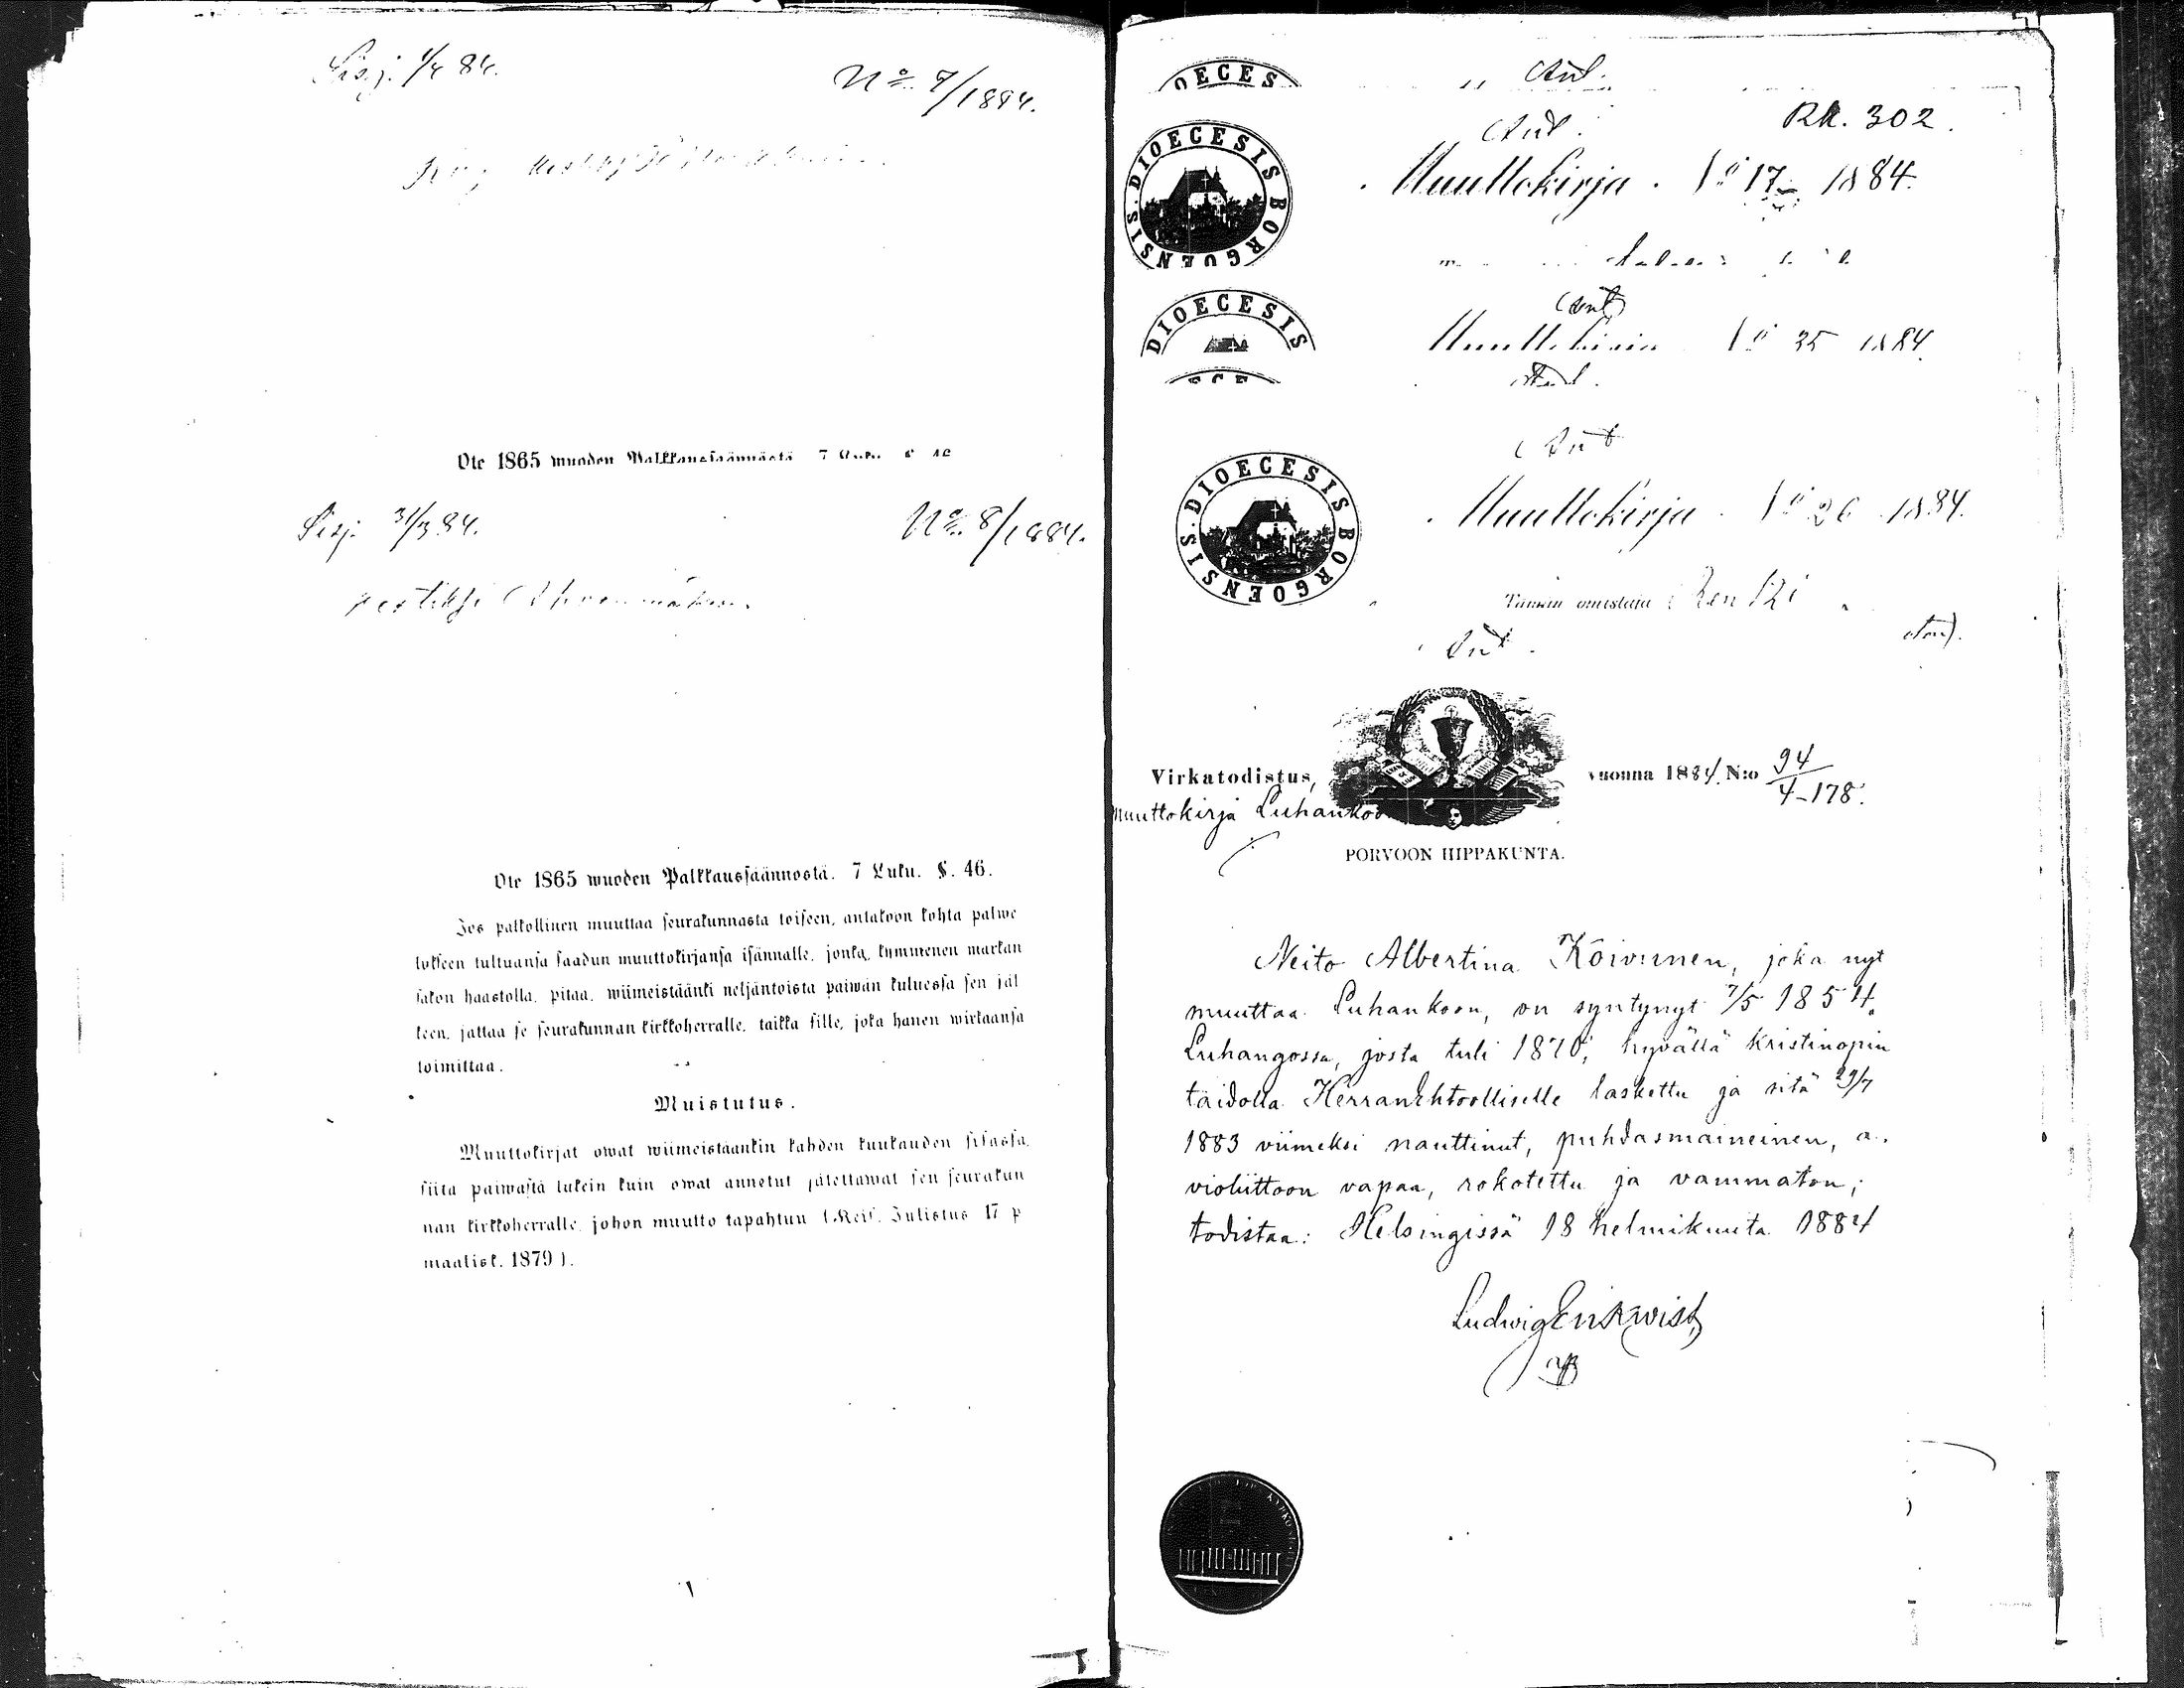 Sisj. 1/4 84.
No 7/1884.
Ote 1865 wuoden Palkkaussäännöstä 7 Luku §. 46
Sisj. 31/3 84.
No 8/1884.
Ote 1865 wuoden Palkkaussäännöstä. 7 Luku. §. 46.
Jos palkollinen muuttaa seurakunnasta toiseen, antakoon kohta palwe
lukseen tultuansa saadun muuttokirjansa isännälle, jonka, kymmenen markan
sakon haastolla, pitää, wiimeistäänki neljäntoista päiwän kuluessa sen jäl
keen, jättää se seurakunnan kirkkoherralle, taikka sille, joka hänen wirkaansa
toimittaa.
Muistutus.
Muuttokirjat owat wiimeistäänkin kahden kuukauden sisässä,
siitä päiwästä lukein kuin owat annetut jätettäwät sen seurakun
nan kirkkoherralle, johon muutto tapahtuu (Keis. Julistus 17 p
maalisk. 1879).
OECES
Rk. 302.
DIOECESIS BORGOENSIS.
Muuttokirja. No 17 1884.
DIOECESIS
Muuttokirja No 25 1884.
ECE
DIOECESIS BORGOENSIS.
Muuttokirja. No 26 1884.
Tämän omistaja
Virkatodistus, vuonna 1884. N:o 94/4-178.
muuttokirja Luhankoo
PORVOON HIPPAKUNTA.
Neito Albertina Koivunen, joka nyt
muuttaa Luhankoon, on syntynyt 7/5 1854
Luhangossa, josta tuli 1870, hyvällä kristinopin
taidolla Herranehtoolliselle laskettu ja sitä 29/7
1883 viimeksi nauttinut, puhdasmaineinen, a-
violiittoon vapaa, rokotettu ja vammaton;
todistaa: Helsingissä 18 helmikuuta 1884
Ludwig Enkwist